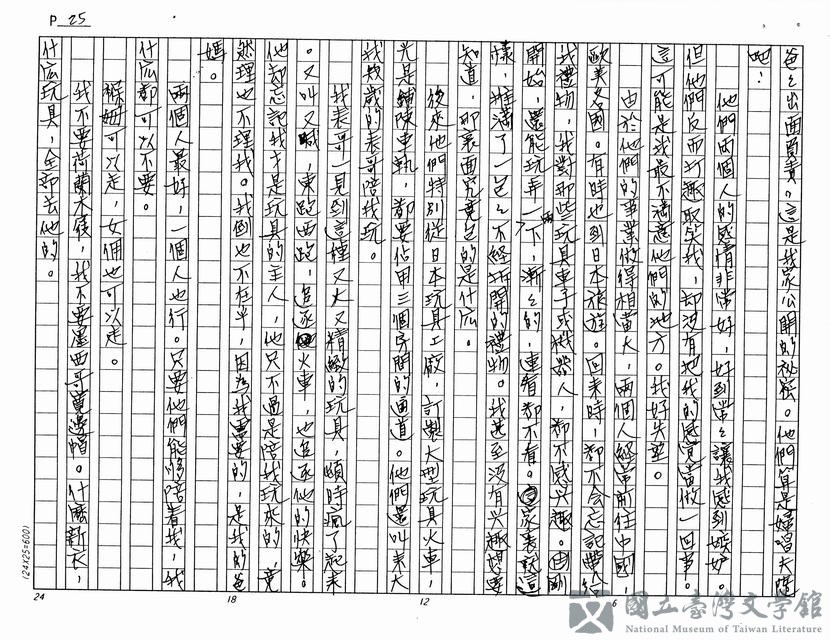 P 25
爸々出面負責。這是我家公開的祕密。他們算是婦唱夫隨
吧！
他們兩個人的感情非常好，好到常々讓我感到嫉妒。
但他們反而打趣取笑我，却沒有把我的感覺當做一回事。
這可能是我最不滿意他們的地方。我好失望。
由於他們的事業做得相當大，兩個人經常前往中國，
歐美各國。有時也到日本旅遊。回來時，都不會忘記帶給
我禮物，我對那些玩具車子或機器人，都不感兴趣。由剛
開始，還能玩弄一兩下，漸々的，連看都不看。家裏就這
樣，堆滿了一包々不經拆開的禮物。我甚至沒有兴趣想要
知道，那裏面究竟包的是什広。
後來他們特別從日本玩具工廠，訂製大型玩具火車，
光是鋪陳車軌，都要佔用三個房間的通道。他們還叫来大
我幾歲的表哥陪我玩。
我表哥一見到這種又大又精緻的玩具，頓時瘋了起来
。又叫又喊，東跑西跑，追逐火車，也追逐他的快樂。
他却忘記我才是玩具的主人，他只不過是陪我玩來的，竟
然理也不理我。我倒也不在乎，因為我需要的，是我的爸
媽。
兩個人最好，一個人也行。只要他們能夠陪着我，我
什広都可以不要。
褓姆可以走，女佣也可以走。
我不要荷蘭木屐，我不要墨西哥寬邊帽。什麼新大，
什広玩具，全部去他的。
24 18 12 6
(24X25=600)
國立臺灣文學館
National Museum of Taiwan Literature